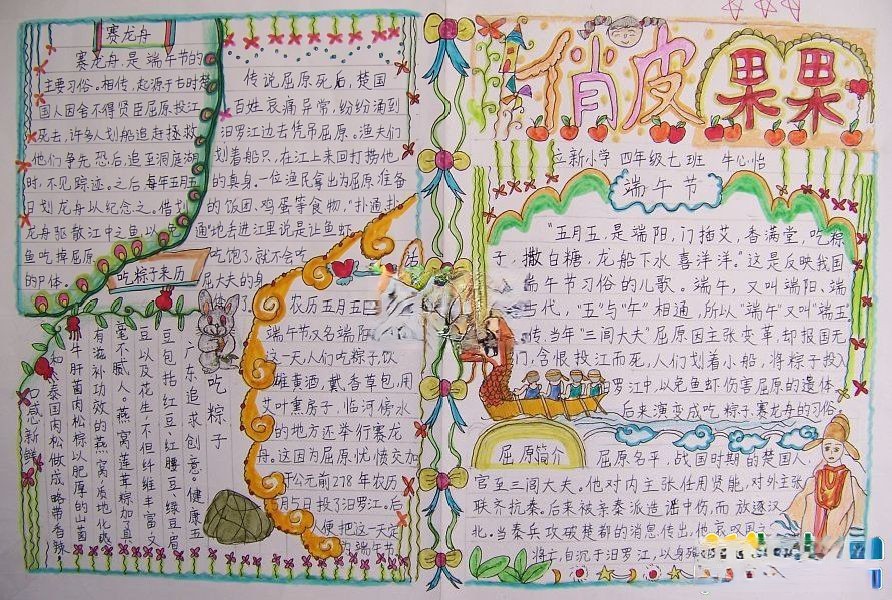 俏皮果果
立新小学 四年级七班 牛心怡
端午节
"五月五,是端阳,门插艾,香满堂,吃粽
子,撒白糖,龙船下水喜洋洋。"这是反映我国
端午节习俗的儿歌。端午,又叫端阳、端
古代,"五"与"午"相通,所以"端午"又叫"端五"
传,当年"三闾大夫"屈原因主张变革,却报国无
们,含恨投江而死,人们划着小船,将粽子投入
汨罗江中,以免鱼虾伤害屈原的遗体。
后来演变成吃粽子、赛龙舟的习俗。
屈原简介
屈原名平,战国时期的楚国人,
官至三闾大夫。他对内主张任用贤能,对外主张
联齐抗秦。后来被亲秦派造谣中伤,而放逐汉
北。当秦兵攻破楚都的消息传出,他哀叹国之
将亡,自沉于汨罗江,以身殉
赛龙舟
赛龙舟是端午节的
主要习俗。相传,起源于古时楚
国人因舍不得贤臣屈原投江
死去,许多人划船追赶拯救
他们争先恐后,追至洞庭湖
时,不见踪迹。之后每年五月五
日划龙舟以纪念之。借划
龙舟驱散江中之鱼,以免
鱼吃掉屈原
的尸体。
吃粽子来历
传说屈原死后,楚国
百姓哀痛异常,纷纷涌到
汨罗江边去凭吊屈原。渔夫们
划着船只,在江上来回打捞他
的真身。一位渔民拿出为屈原准备
的饭团、鸡蛋等食物,"扑通、扑
通"地丢进江里说是让鱼虾
吃饱了,就不会吃
屈大夫的身
体了。
农历五月五日
端午节又名端阳
这一天,人们吃粽子,饮
雄黄酒,戴香草包,用
艾叶熏房子,临河傍水
的地方还举行赛龙
舟。这因为屈原忧愤交加
于公元前278年农历
月5日投了汨罗江。后
便把这一天定
为端午节
吃粽子
广东追求创意。健康五
豆包括红豆、红腰豆、绿豆、眉
豆以及花生,不但纤维丰富,又
毫不腻人。燕窝莲蓉粽加了具
有滋补功效的燕窝,质地化或
牛肝菌肉松粽以肥厚的山菌
和泰国肉松做成,略带香辣,
口感新鲜